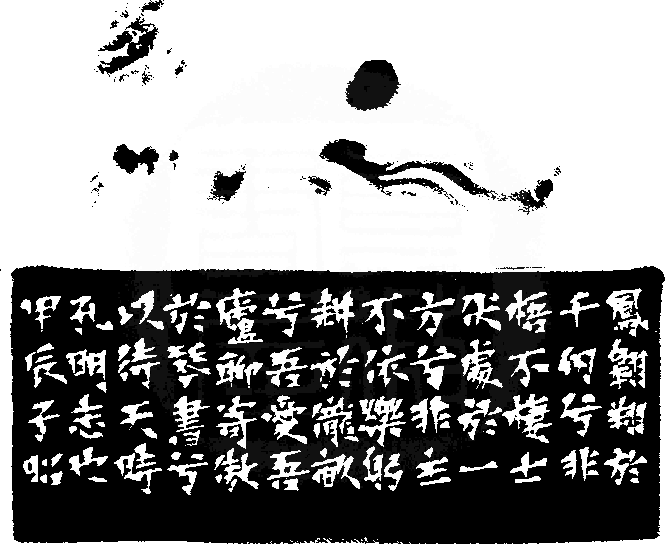 鳳翱翔於
千仞兮非
梧不棲士
伏處於一
方兮非主
不依樂躬
耕於隴畝
兮吾愛吾
廬聊寄傲
於琴書兮
以待天時
孔明志也
甲辰子昭